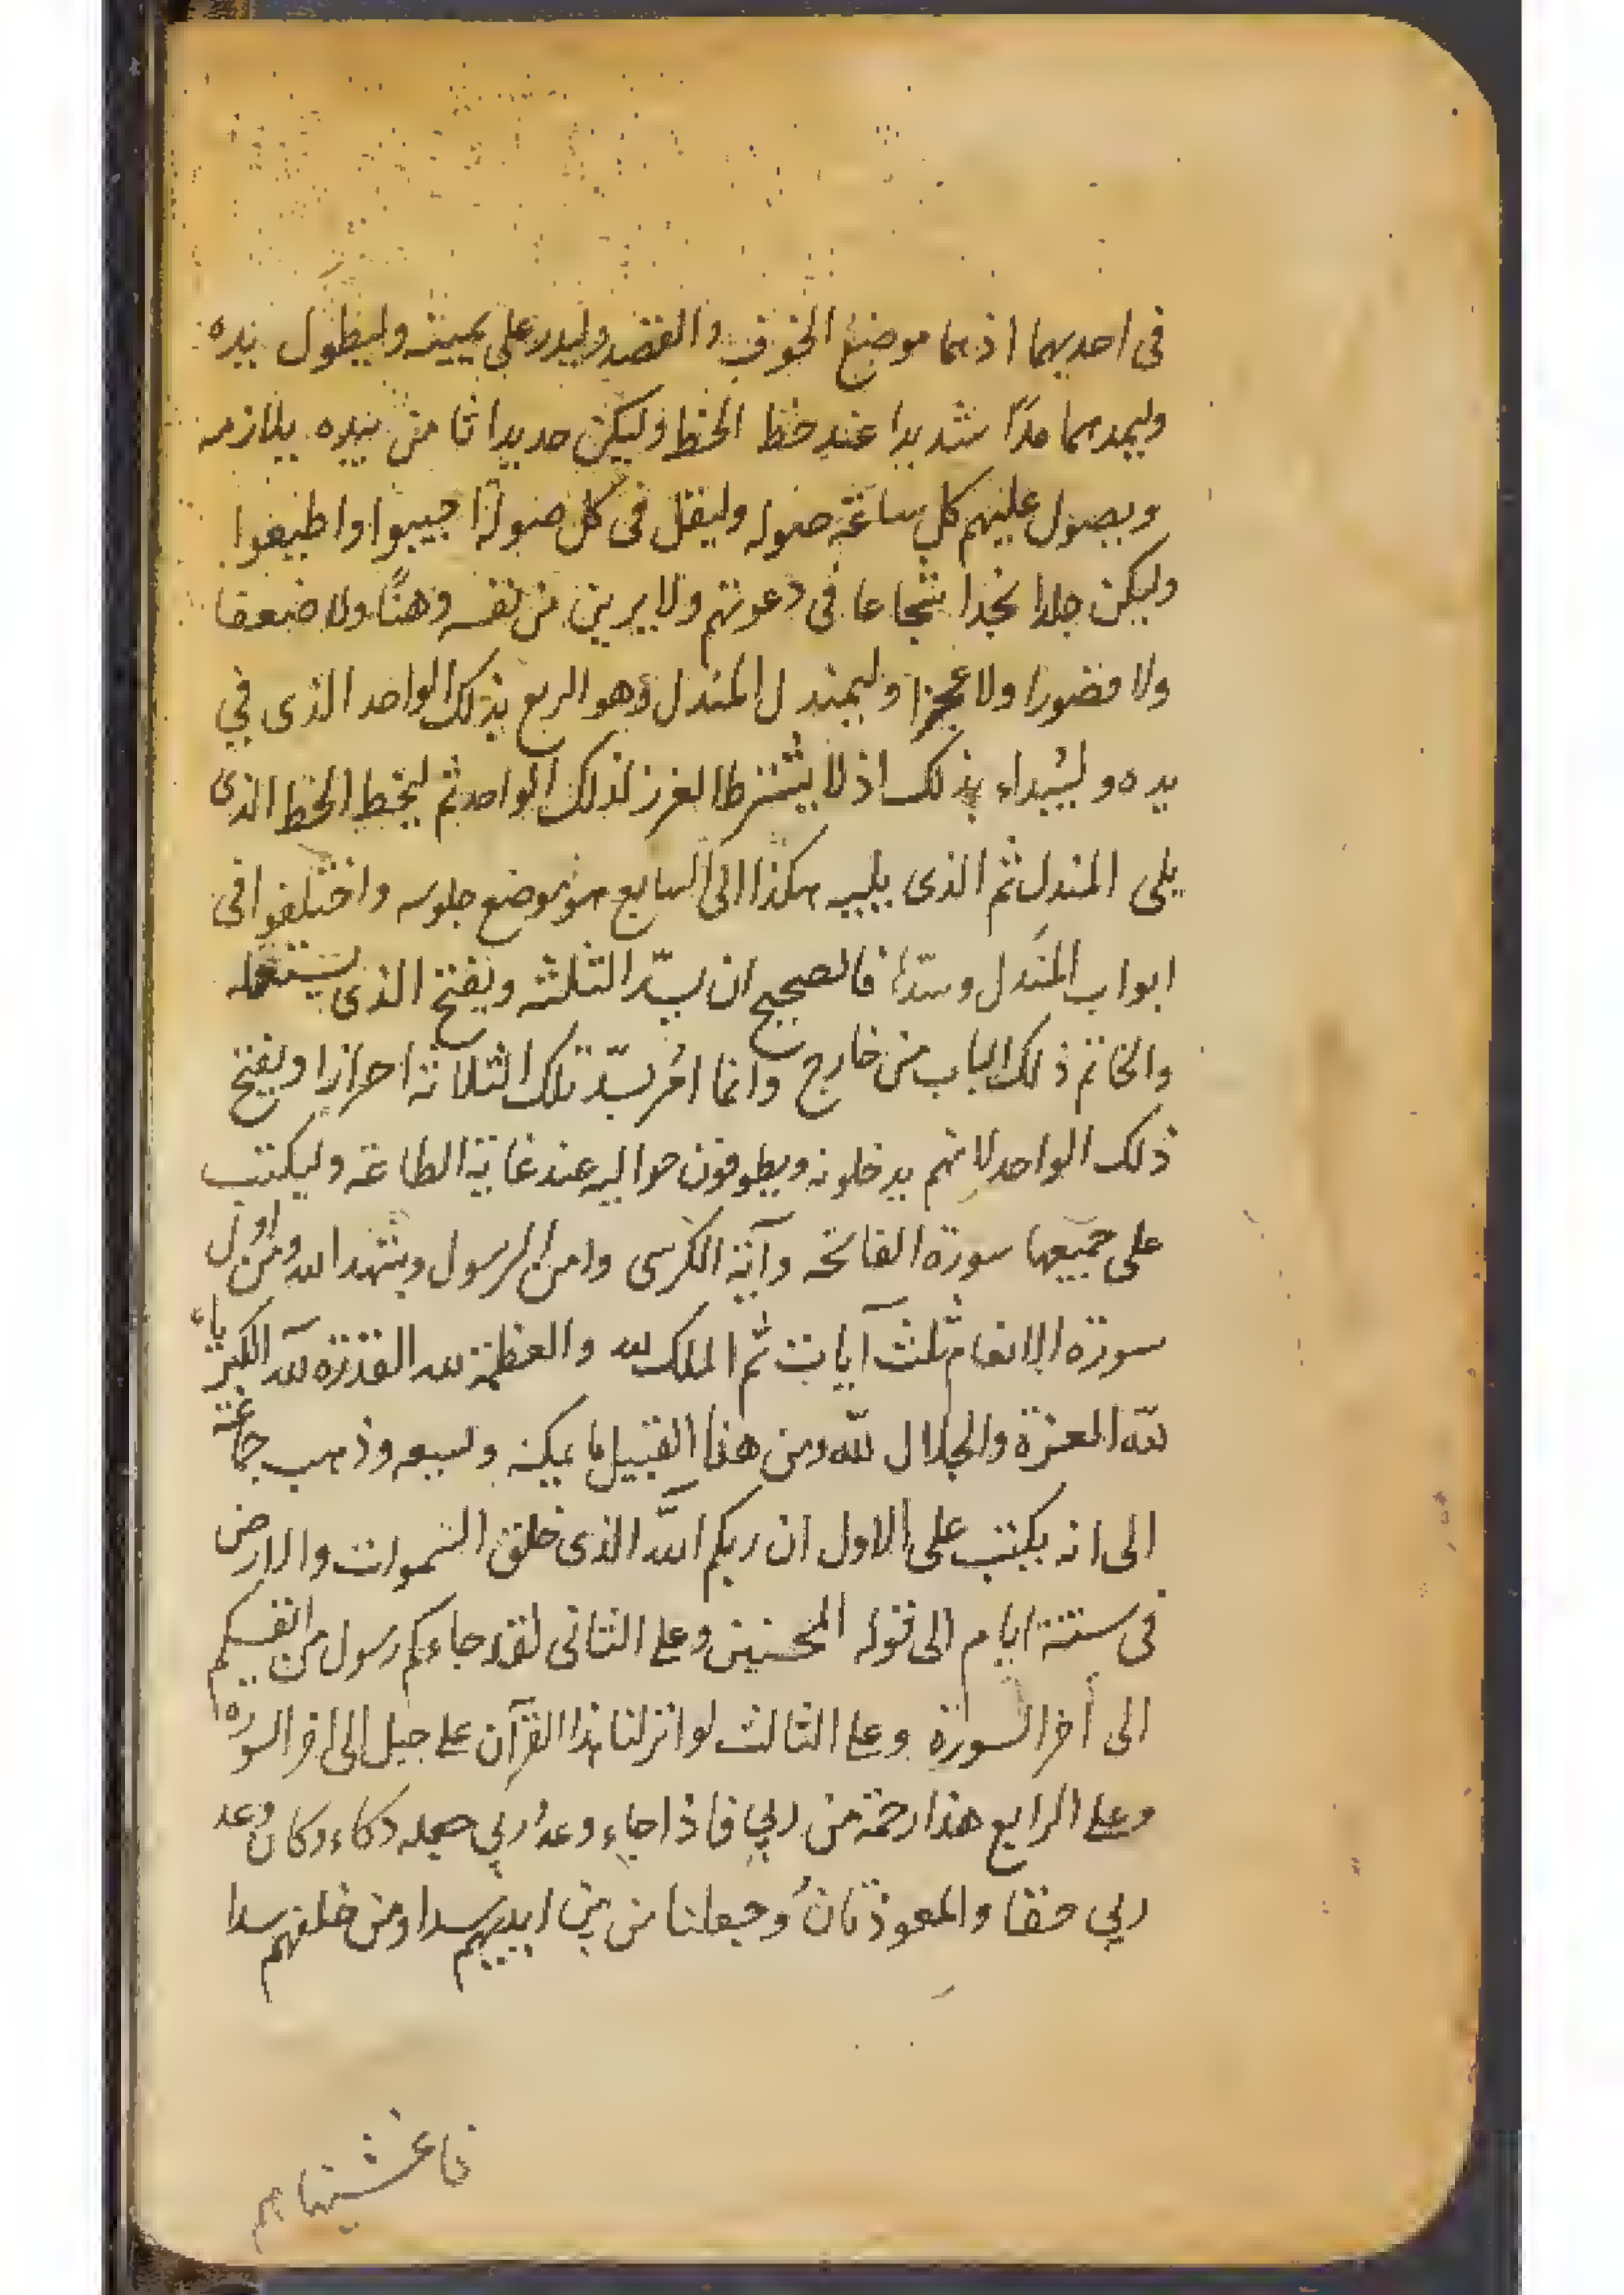 فى احديهما اذهما موضع الخوف والقصد وليدر على يمينه وليطول يده
وليمدهما مدّا شديدا عند خط الخط وليكن حديدا ثا من بيده يلازمه
ويصول عليهم كل ساعة صوله وليقل فى كل صولة اجيبوا واطيعوا
وليكن جلدا نجدا شجاعا فى دعوتهم ولا يرين من نفسه وهنًا ولا ضعفا
ولا قصورا ولا عجزا وليمندل المندل وهو الربع بذلك الواحد الذى في
يده وليبداء بذلك اذ لا يشترط الغرز لذلك الواحد ثم ليخط الخط الذى
يلى المندل ثم الذى يليه هكذا الى السابع هو موضع جلوسه واختلفوا فى
ابواب المندل وسدّها فالصحيح ان يسدّ الثلثه ويفتح الذى يستعمله
والخاتم ذلك الباب من خارج وانما امُر بسدّ تلك الثلاثة احرازا ويفتح
ذلك الواحد لانهم يدخلونه ويطوفون حواليه عند غاية الطاعة وليكتب
على جميعها سورة الفاتحه وآية الكرسى وامن الرسول وشهد الله ومن اول
سورة الانعام ثلث آيات ثم الملك لله والعظمة لله القدرة لله الكبرياء
لله العزة والجلال لله ومن هذا القبيل ما يمكنه ويسعه وذهب جماعة
الى انه يكتب على الاول ان ربكم الله الذى خلق السموات والارض
فى ستة ايام الى قوله المحسنين وعلى الثانى لقد جاءكم رسول من انفسكم
الى أخر السورة وعلى الثالث لو انزلنا هذا القرآن على جبل الى اخر السورة
وعلى الرابع هذا رحمة من ربي فاذا جاء وعد ربي جعله دكاء وكان وعد
ربي حقا والمعوذتان وجعلنا من بين ايديهم سدا ومن خلفهم سدا
فاغشيناهم